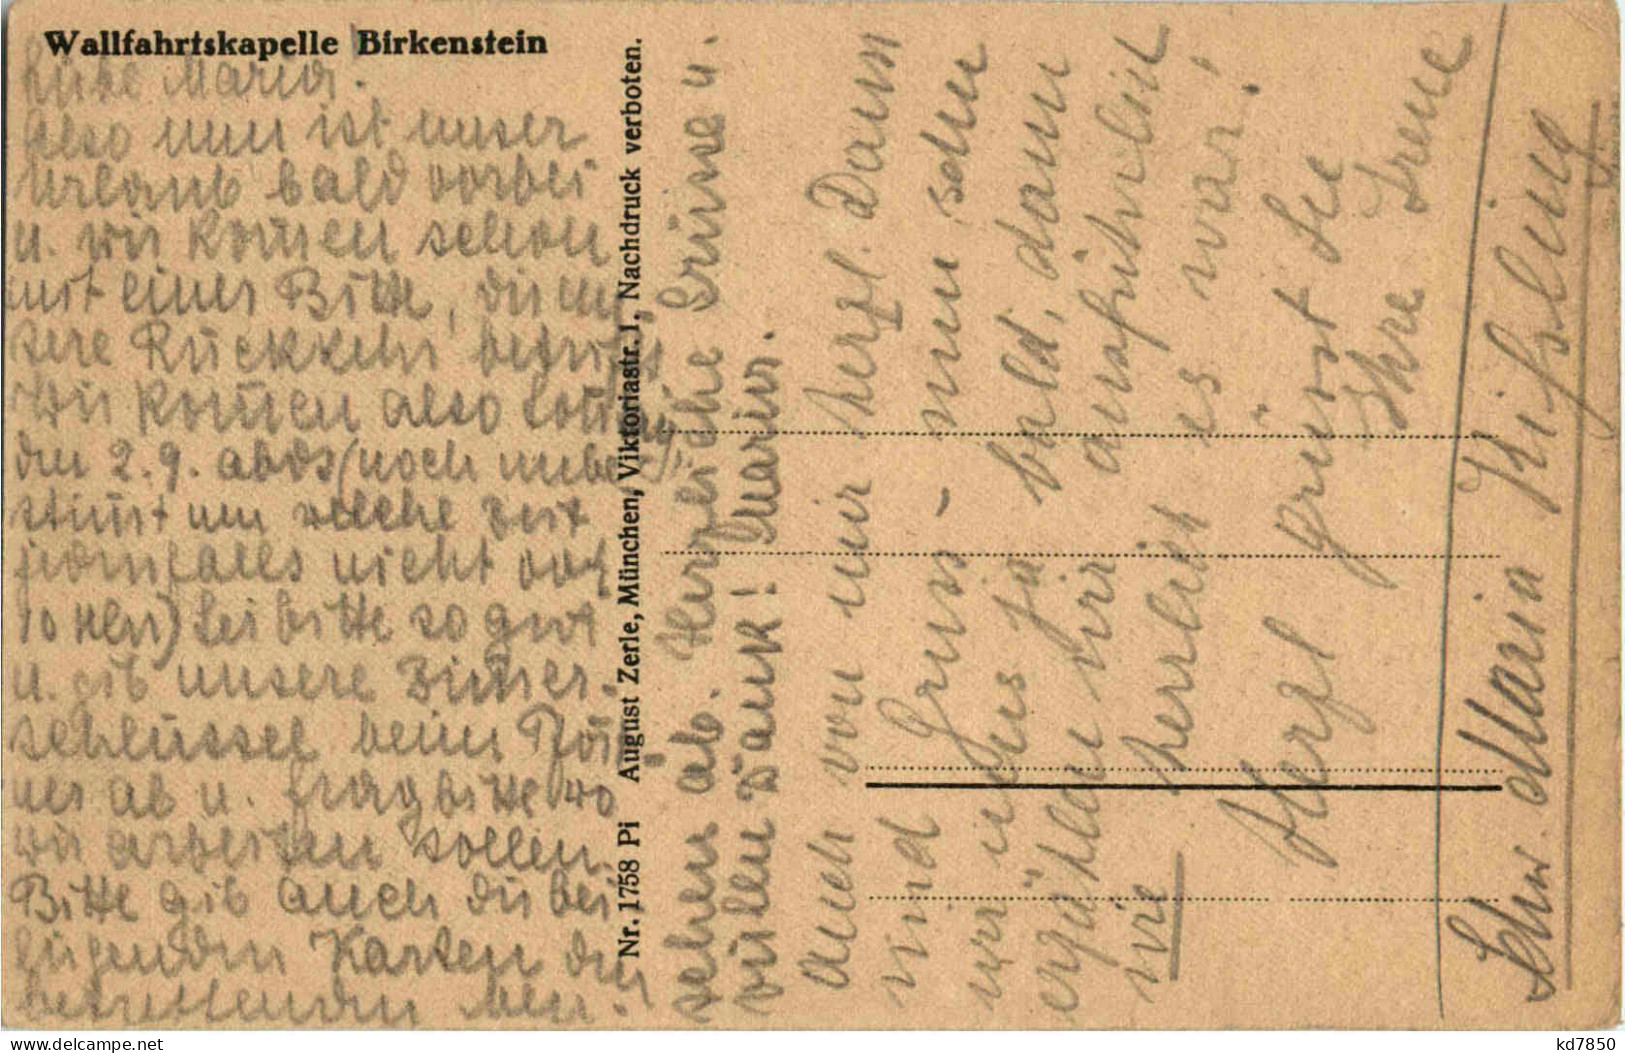 Wallfahrtskapelle Birkenstein
Liebe Maria!
Also nun ist unser
Urlaub bald vorbei
u. wir kom̅en schon
mit einer Bitte, die un
sere Rückkehr betrifft
Wir kom̅en also Sonntag
den 2.9. abds (noch unbe-
stim̅t um welche Zeit
jedenfalls nicht vor
10 Uhr) Sei bitte so gut
u. gib unsere Zim̅er-
schlüssel beim Pört
ner ab u. frag bitte wo
wir arbeiten sollen.
Bitte gib auch die bei
liegenden Karten den
betreffenden Men-
Nr. 1758 Pi August Zerle, München, Viktoriastr. 1, Nachdruck verboten.
schen ab. Herzliche Grüsse u.
vielen Dank! Maria.
Auch von mir herzl. Dank
und Gruss - nun sehen
wir uns ja bald, dann
erzählen wir ausführlich
wie herrlich es war!
Herzl grüsst Sie
Ihre Irene
Schw. Maria Kissling
kd7850